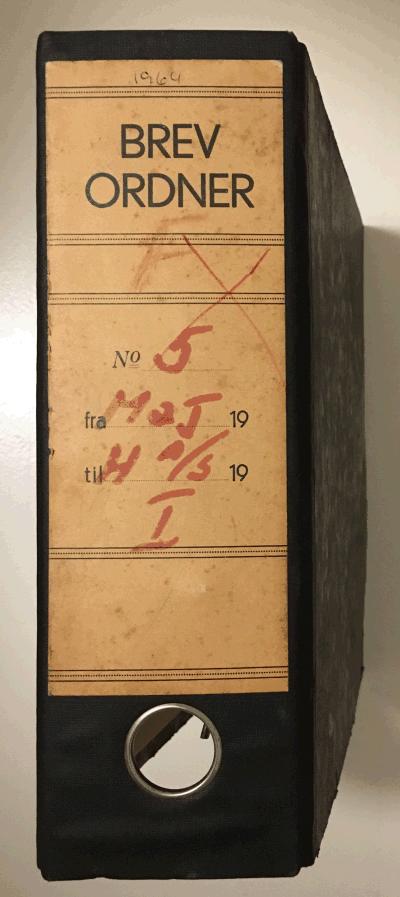 1964
BREV
ORDNER
F
No 5
fra Maj 19
til H A/S 19
I